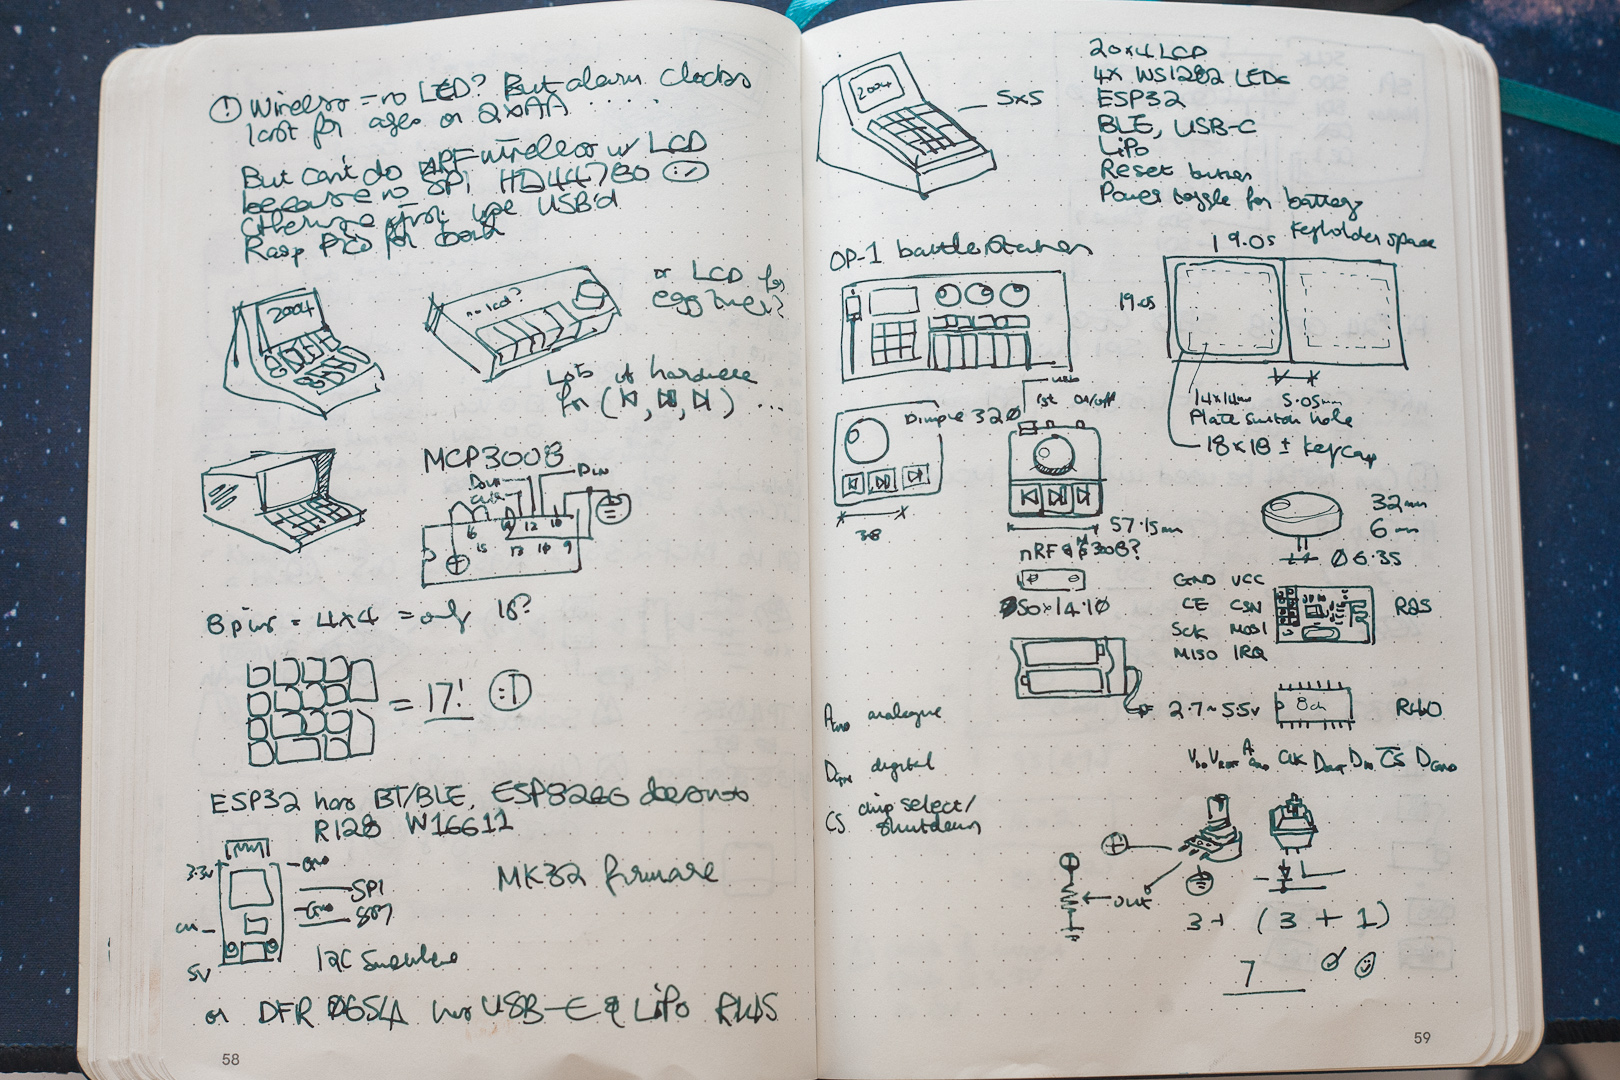 ! Wireless = no LED? But alarm clocks
last for ages on 2xAA ......
But can't do NRF wireless w/ LCD
because no SPI HD44780
otherwise just use USB'd
Rasp Pico for board
2004
no lcd?
or LCD for
egg timer?
Lots of hardware
for ( , , ) ...
MCP3008
Dout
Din
CLK
9 12 10
16 15 13 10 9
8 pins = 4x4 = only 16?
= 17!
ESP32 has BT/BLE, ESP8266 doesn't
R128 W16611
3.3v
GND
SPI
GND
5V
MK32 firmware
I2C
or DFR0654 has USB-C & LiPo
58
2004
5x5
20x4 LCD
4x WS1282 LEDs
ESP32
BLE, USB-C
LiPo
Reset button
Power toggle for battery
OP-1 battlestation
19.05 keyholder space
19.05
14x14mm
5.05mm
Plate switch hole
18x18 ± keycap
Dimple 320
rst on/off
38
57.15mm
32mm
6mm
Ø6.35
nRF & 3008?
50x14.10
GND VCC
CE CSN
SCK MOSI
MISO IRQ
R85
2.7~5.5v
8ch
R40
AGND analogue
DGND digital
CS chip select/
shutdown
VDD VREF AGND CLK DOUT DIN CS DGND
OUT
3+ (3 + 1)
7
59